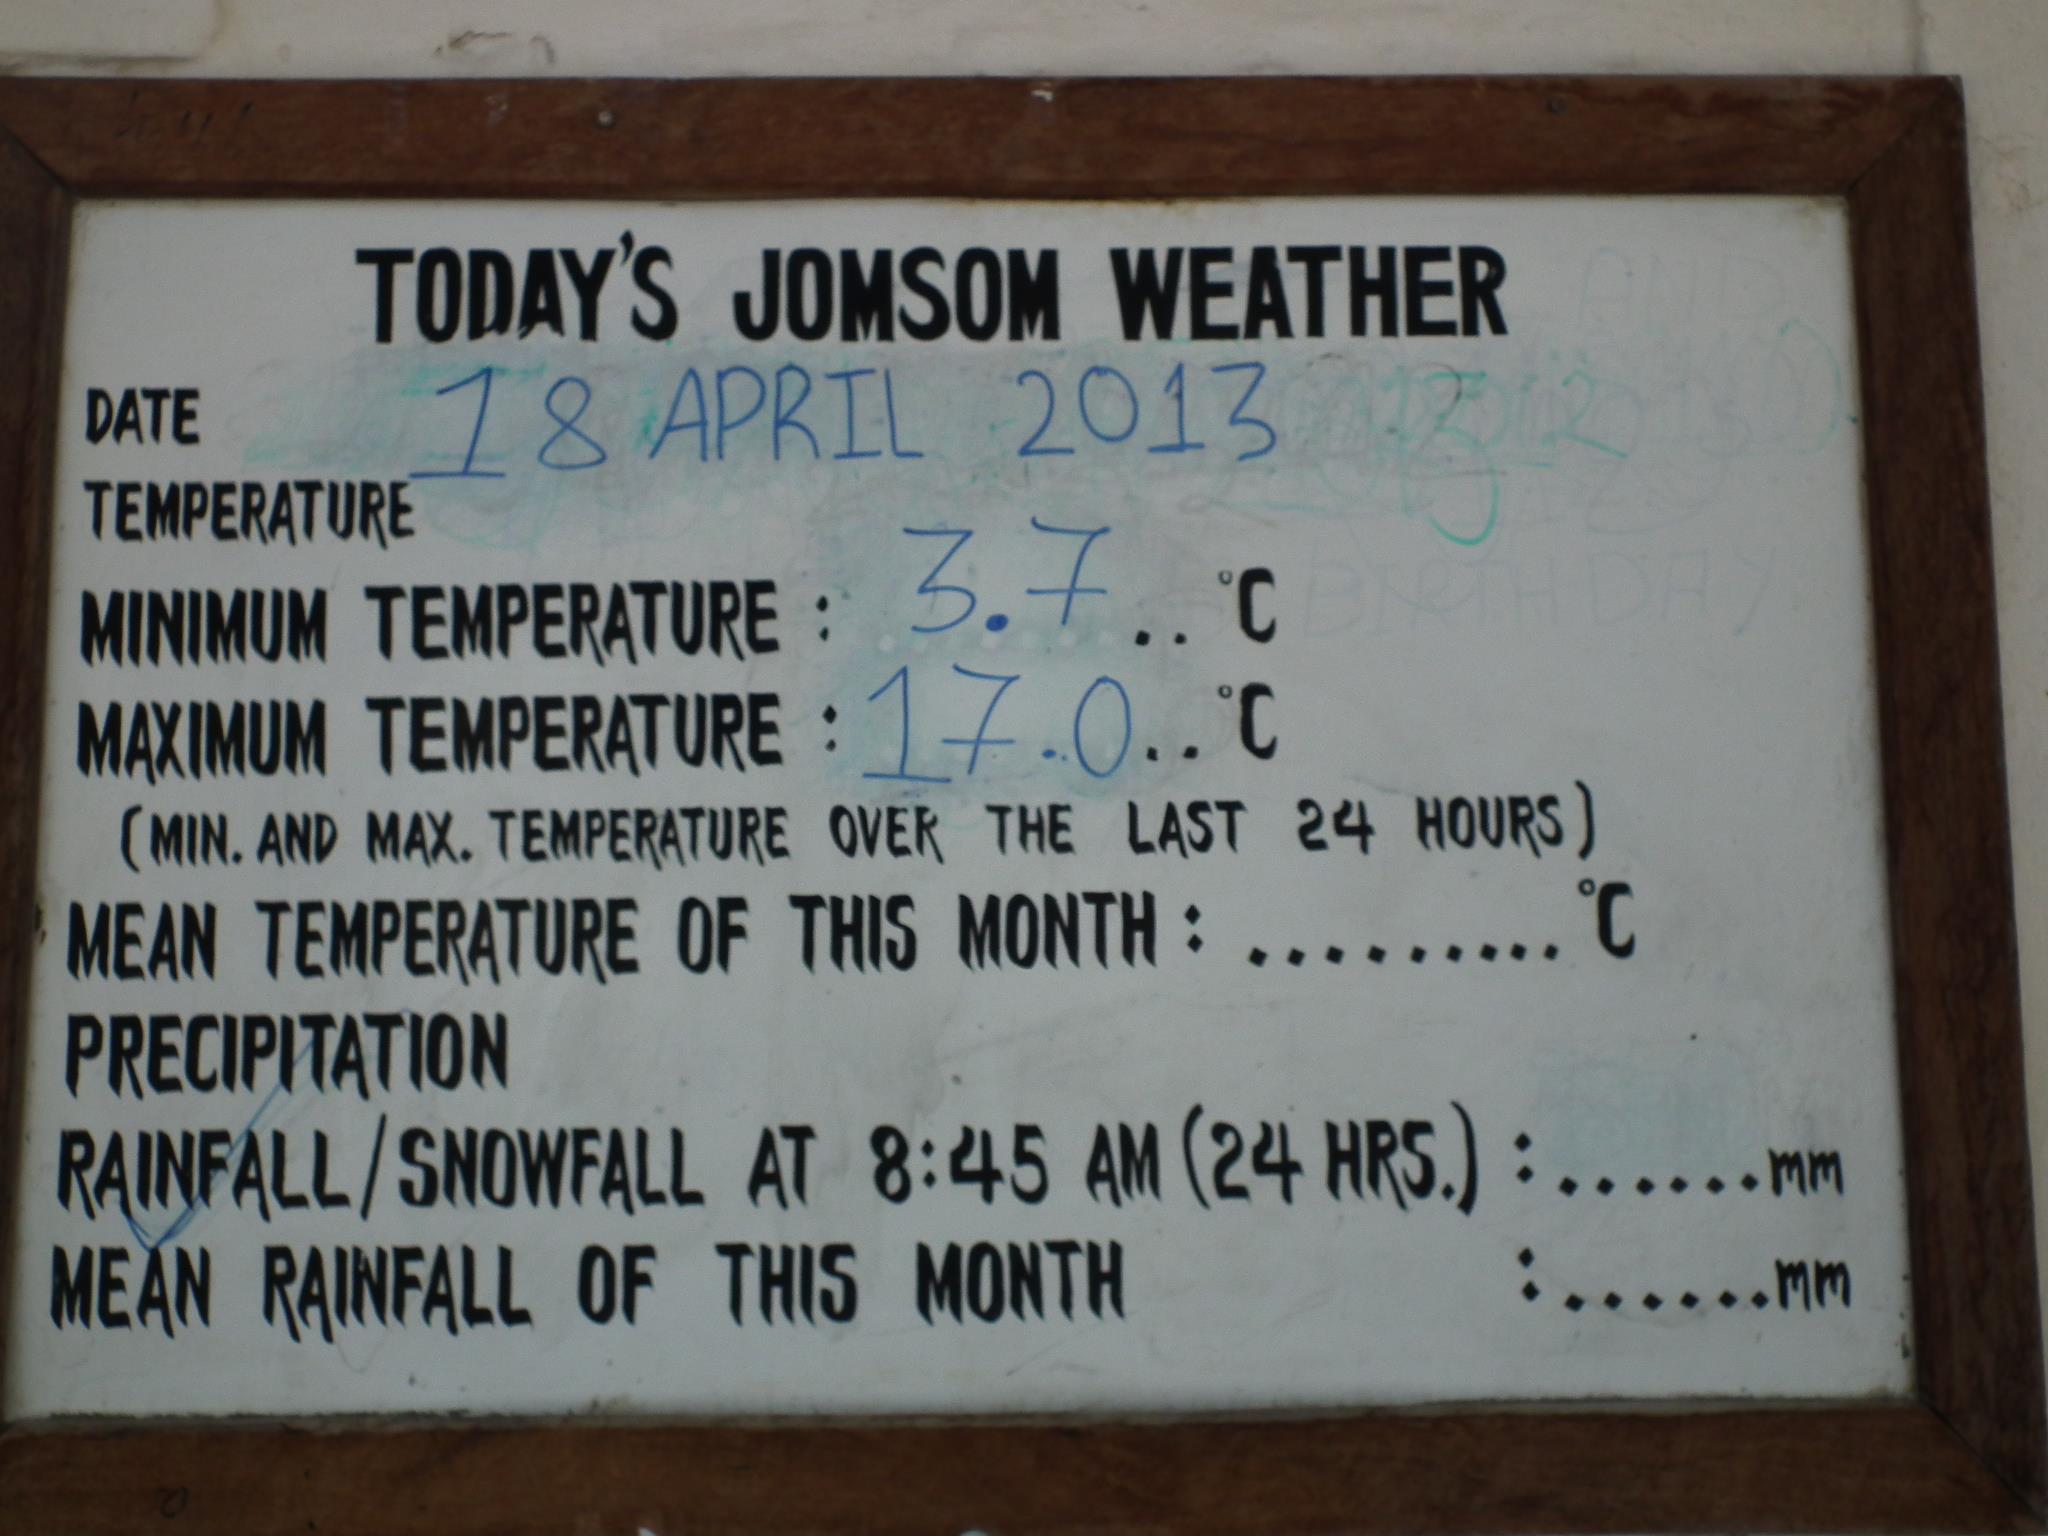 TODAY'S JOMSOM WEATHER
DATE 18 APRIL 2013
TEMPERATURE
MINIMUM TEMPERATURE : 3.7 .. °C
MAXIMUM TEMPERATURE : 17.0 .. °C
(MIN. AND MAX. TEMPERATURE OVER THE LAST 24 HOURS)
MEAN TEMPERATURE OF THIS MONTH : ......... °C
PRECIPITATION
RAINFALL/SNOWFALL AT 8:45 AM (24 HRS.) : ...... mm
MEAN RAINFALL OF THIS MONTH : ...... mm
BIRTHDAY